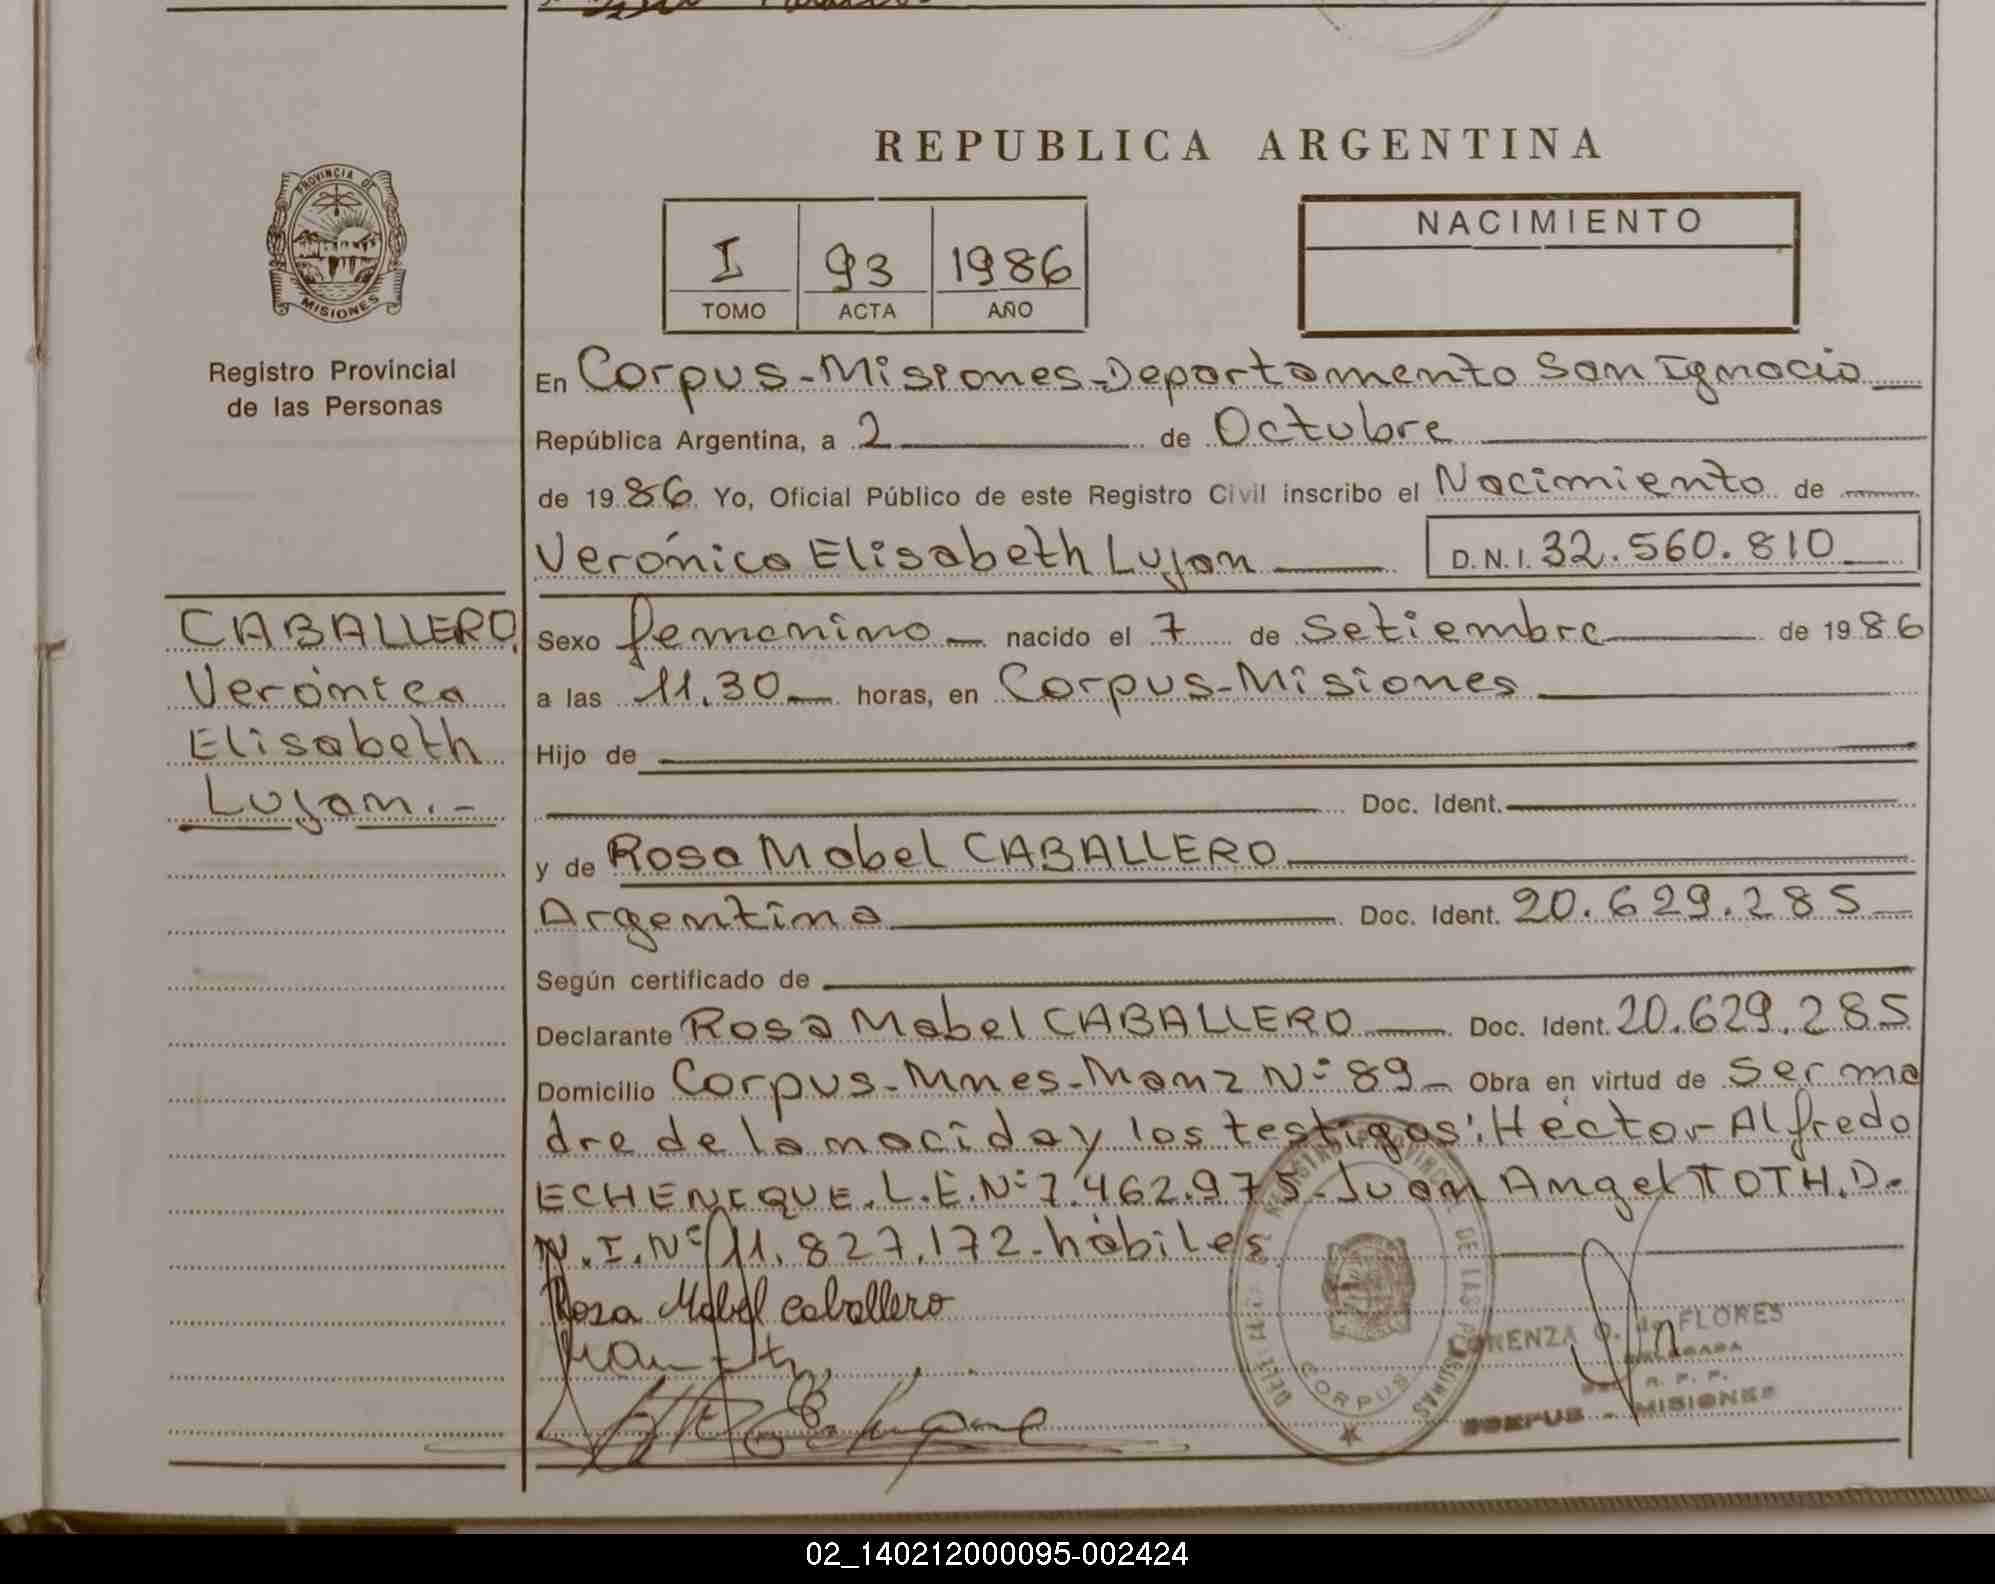 REPUBLICA ARGENTINA
PROVINCIA DE
MISIONES
I 93 1986
TOMO ACTA AÑO
NACIMIENTO
Registro Provincial
de las Personas
En Corpus-Misiones-Departamento San Ignacio
República Argentina, a 2 de Octubre
de 1986 Yo, Oficial Público de este Registro Civil inscribo el Nacimiento de
Verónica Elisabeth Lujan D.N.I. 32.560.810
CABALLERO,
Verónica
Elisabeth
Lujan.-
Sexo femenino nacido el 7 de Setiembre de 1986
a las 11.30 horas, en Corpus-Misiones
Hijo de
Doc. Ident.
y de Rosa Mabel CABALLERO
Argentina Doc. Ident. 20.629.285
Según certificado de
Declarante Rosa Mabel CABALLERO Doc. Ident. 20.629.285
Domicilio Corpus-Mnes-Manz Nº 89 Obra en virtud de ser ma
dre de la nacida y los testigos: Héctor Alfredo
ECHENIQUE. L.E.Nº 7.462.975-Juan Angel TOTH.D.
N.I.Nº 11.827.172-hábiles
Rosa Mabel Caballero
DE LAS PERSONAS
CORPUS
LORENZA O. de FLORES
DELEGADA
R. P. P.
CORPUS - MISIONES
02_140212000095-002424